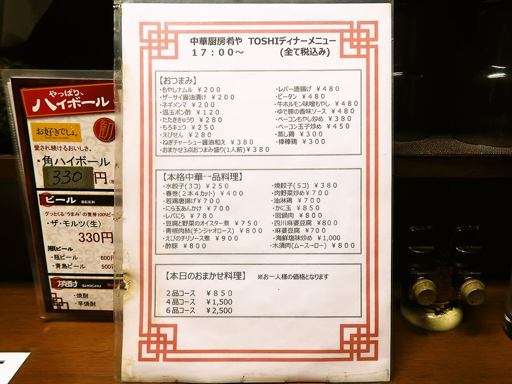 中華厨房肴や TOSHIディナーメニュー
17:00～ (全て税込み)
【おつまみ】
・もやしナムル ¥200
・ザーサイ醤油漬け ¥200
・ネギメンマ ¥200
・温玉ポン酢 ¥120
・たたききゅうり ¥280
・もろキュウ ¥250
・えびせん ¥280
・ねぎチャーシュー醤油和え ¥380
・おまかせ3点おつまみ盛り(1人前) ¥380
・レバー唐揚げ ¥480
・ピータン ¥480
・牛ホルモン味噌もやし ¥480
・ゆで豚の香味ソース ¥480
・ベーコンもやし炒め ¥380
・ベーコン玉子炒め ¥450
・蒸し鶏 ¥300
・棒棒鶏 ¥300
【本格中華一品料理】
・水餃子(3コ) ¥250
・春巻(2本4カット) ¥400
・若鶏唐揚げ ¥700
・にら玉あんかけ ¥700
・レバにら ¥780
・豆腐と野菜のオイスター煮 ¥750
・青椒肉絲(チンジャオロース) ¥800
・えびのチリソース煮 ¥900
・酢豚 ¥800
・焼餃子(5コ) ¥380
・肉野菜炒め ¥700
・油淋鶏 ¥700
・かに玉 ¥850
・回鍋肉 ¥800
・四川麻婆豆腐 ¥800
・麻婆豆腐 ¥700
・海鮮塩味炒め ¥1,000
・木須肉(ムースーロー) ¥800
【本日のおまかせ料理】 ※お一人様の価格となります
2品コース ¥850
4品コース ¥1,500
6品コース ¥2,500
やっぱり、
ハイボール
お好きでしょ。
愛され続けるおいしさ。
・角ハイボール
330円
ビール BEER
・ザ・モルツ(生)
330円
・瓶ビール 600
・青島ビール 500
焼酎 SHOCHU
・焼酎
・芋焼酎